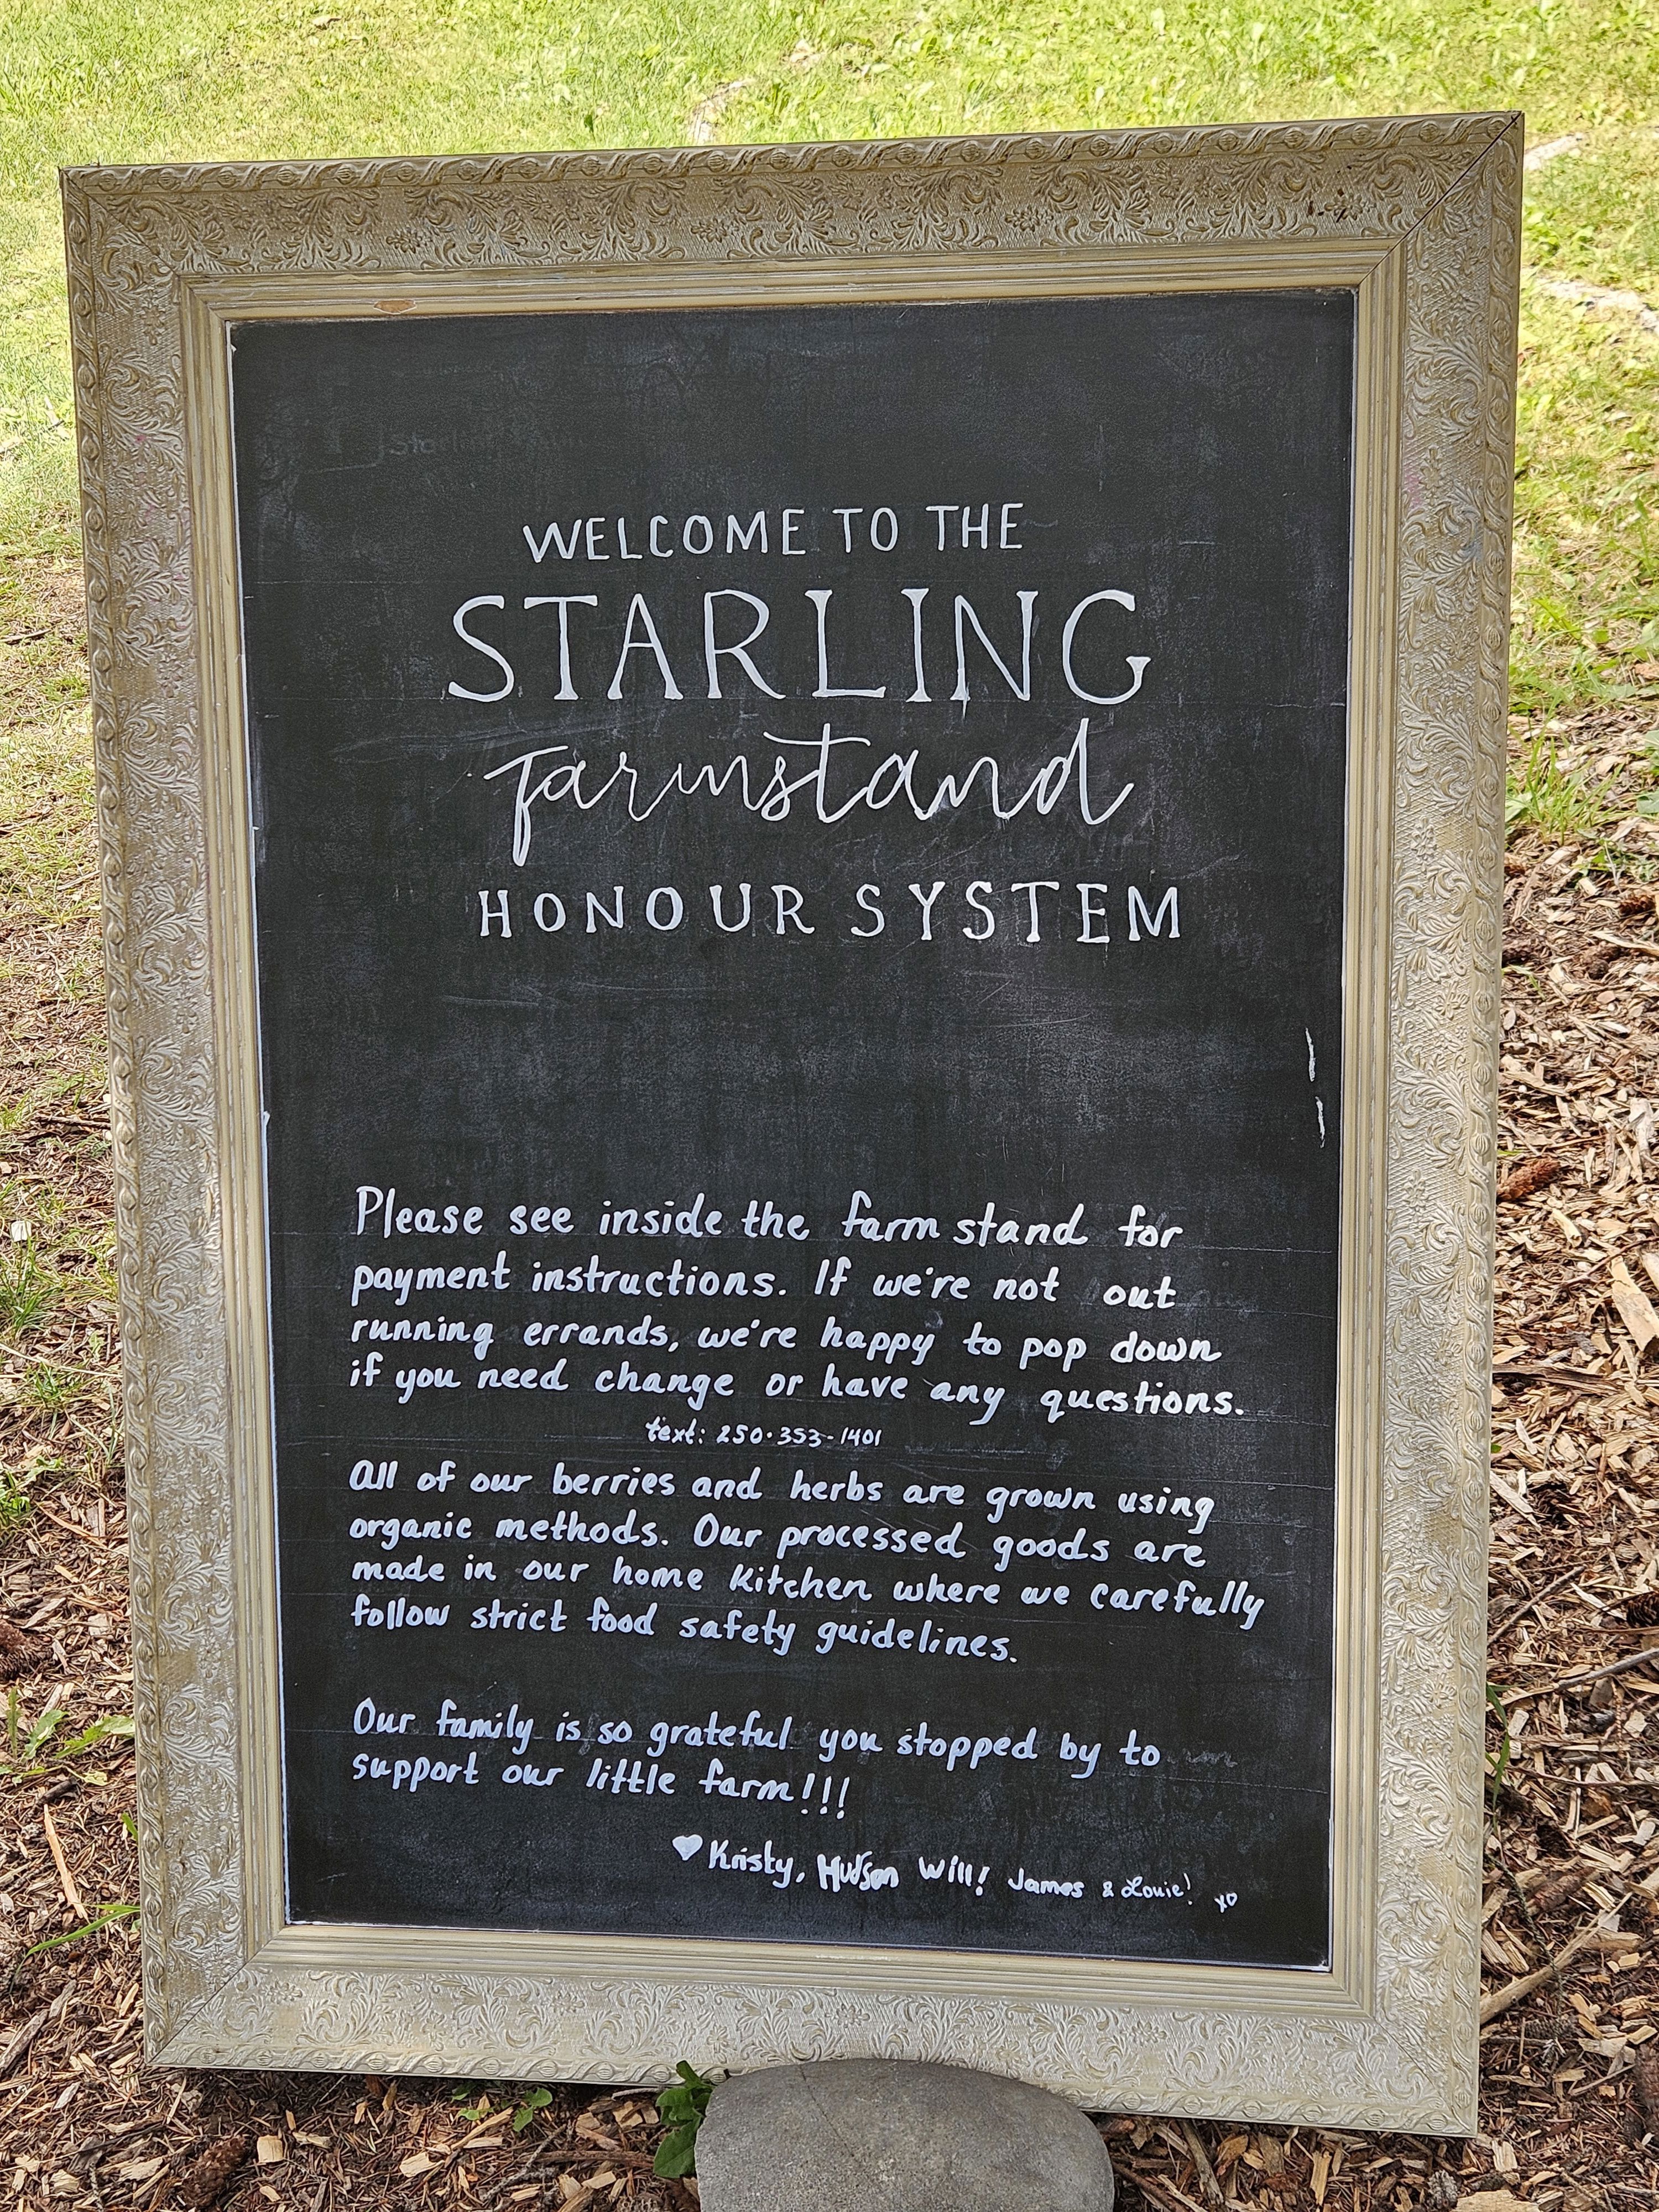 WELCOME TO THE
STARLING
farmstand
HONOUR SYSTEM
Please see inside the farm stand for
payment instructions. If we're not out
running errands, we're happy to pop down
if you need change or have any questions.
text: 250·353-1401
All of our berries and herbs are grown using
organic methods. Our processed goods are
made in our home kitchen where we carefully
follow strict food safety guidelines.
Our family is so grateful you stopped by to
support our little farm!!!
♥ Kristy, Hudson Will! James & Louie! xo